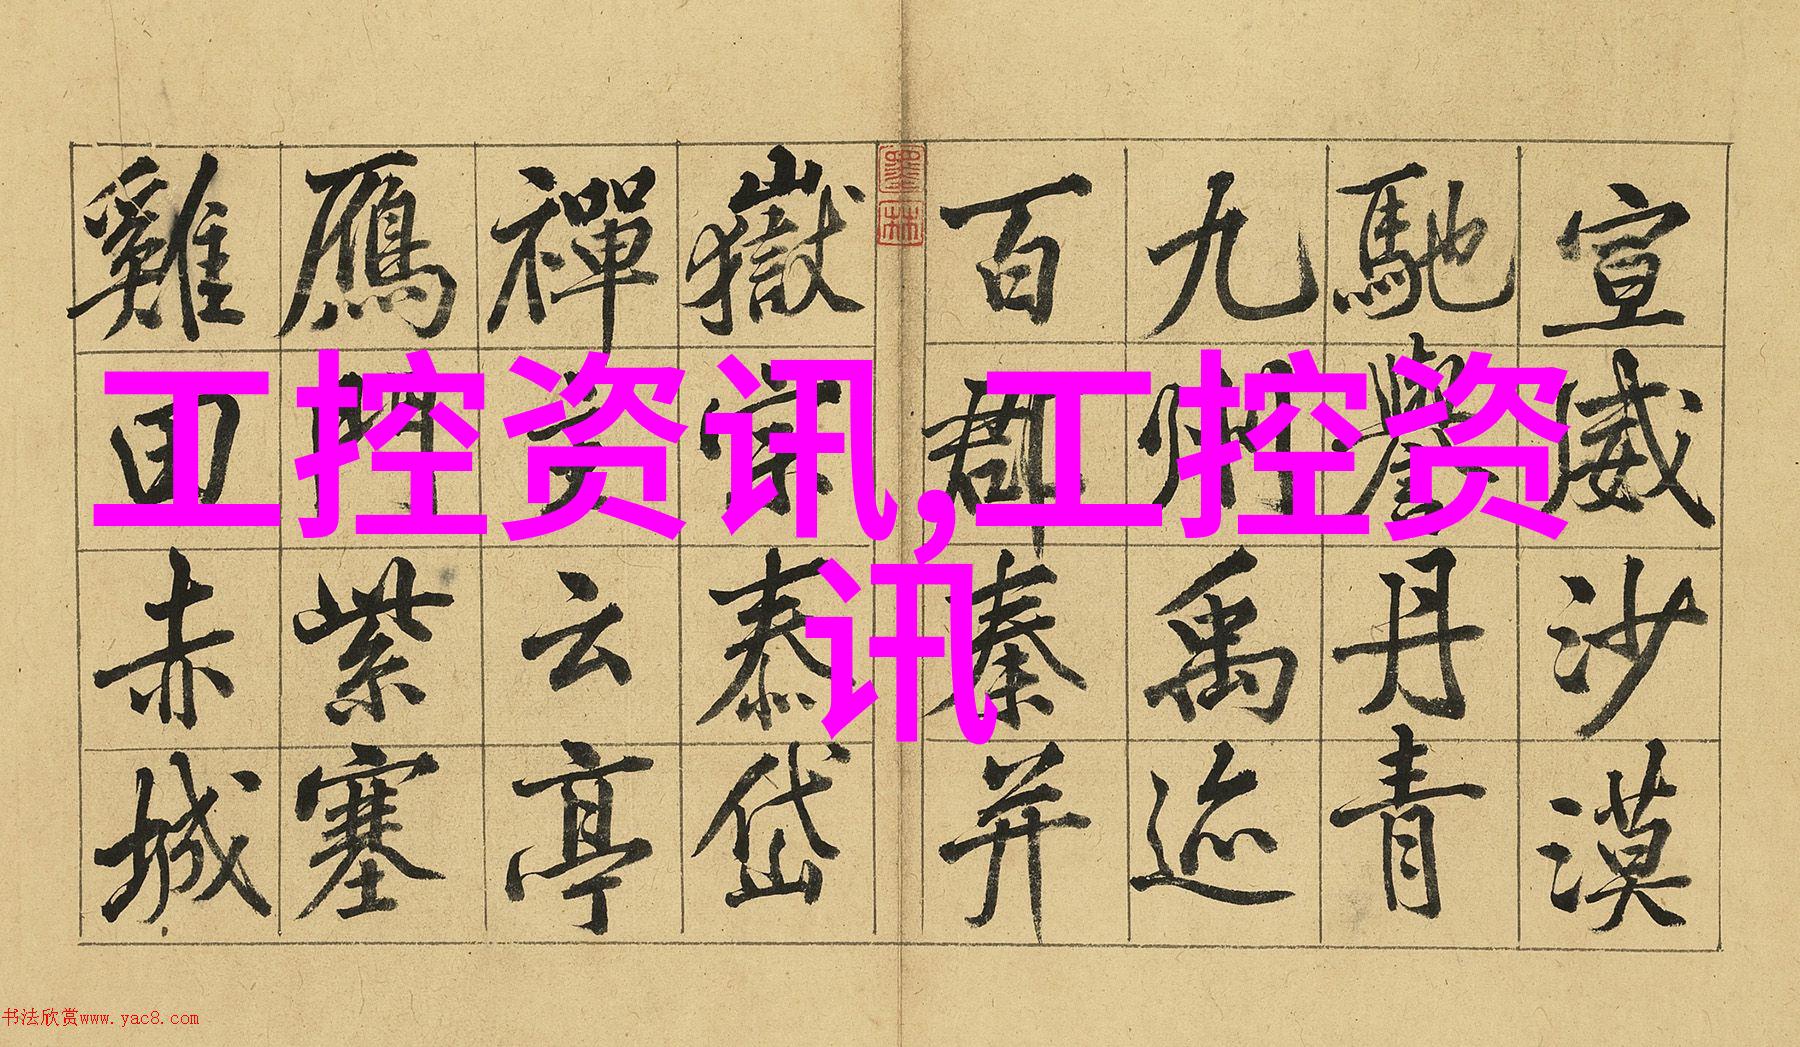 宣威沙漠
馳譽丹青
九州禹迹
百郡秦并
嶽宗泰岱
禪主云亭
鴈門紫塞
雞田赤城
墨林
工控资讯,工控资
讯
书法欣赏www.yac8.com